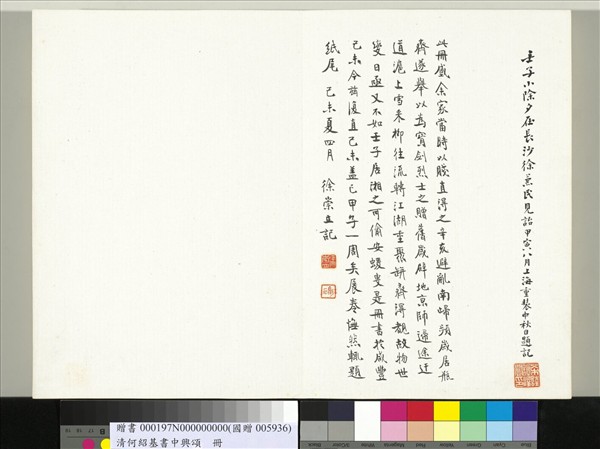 壬子小除夕在長沙徐叔民見詒甲寅八月上海重裝中秋日題記
此冊藏余家當時以賤直得之辛亥避亂南歸頻歲居瓶
齋遂舉以為寶劍烈士之贈舊歲辟地京師還途迂
道滬上雪來柳往流轉江湖重聚缾齋得覩故物世
變日亟又不如壬子居湘之可偷安蝯叟是冊書於咸豐
己未今茲復直己未蓋已甲子一周矣展卷悔然輒題
紙尾 己未夏四月 徐崇立記
贈書 000197N000000000(國贈 005936)
清何紹基書中興頌 冊